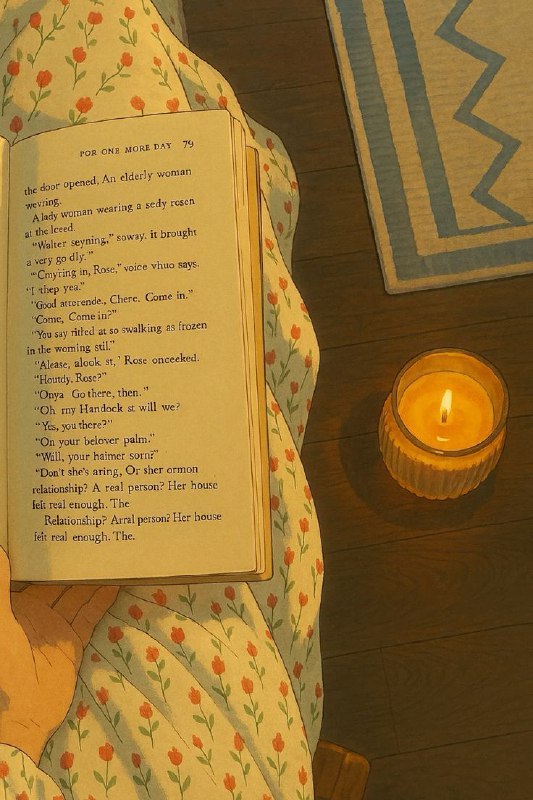 FOR ONE MORE DAY 79
the door opened, An elderly woman
wevring.
A lady woman wearing a sedy rosen
at the lceed.
"Walter seyning," soway. it brought
a very go dly."
"Cmyring in, Rose," voice vhuo says.
"I thep yea."
"Good atterende., Chere. Come in."
"Come, Come in?"
"You say ritled at so swalking as frozen
in the woming stil."
"Alease, alook st,' Rose onceeked.
"Houtdy, Rose?"
"Onya Go there, then."
"Oh my Handock st will we?
"Yes, you there?"
"On your belover palm."
"Will, your haimer som?"
"Don't she's aring, Or sher ormon
relationship? A real person? Her house
feit real enough. The
Relationship? Arral person? Her house
feit real enough. The.